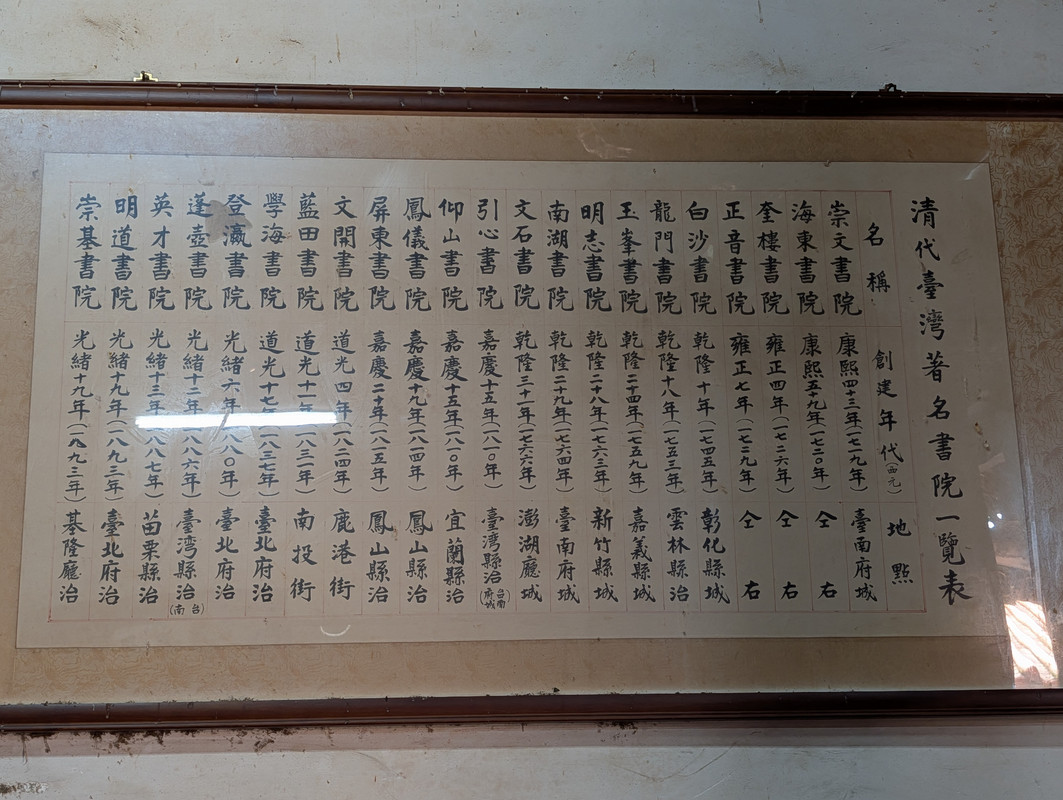 清代臺灣著名書院一覽表
名稱 創建年代(西元) 地點
崇文書院 康熙四十三年(一七一九年) 臺南府城
海東書院 康熙五十九年(一七二〇年) 仝右
奎樓書院 雍正四年(一七二六年) 仝右
正音書院 雍正七年(一七二九年) 仝右
白沙書院 乾隆十年(一七四五年) 彰化縣城
龍門書院 乾隆十八年(一七五三年) 雲林縣治
玉峯書院 乾隆二十四年(一七五九年) 嘉義縣城
明志書院 乾隆二十八年(一七六三年) 新竹縣城
南湖書院 乾隆二十九年(一七六四年) 臺南府城
文石書院 乾隆三十一年(一七六六年) 澎湖廳城
引心書院 嘉慶十五年(一八一〇年) 臺灣縣治(台南府城)
仰山書院 嘉慶十五年(一八一〇年) 宜蘭縣治
鳳儀書院 嘉慶十九年(一八一四年) 鳳山縣治
屏東書院 嘉慶二十年(一八一五年) 鳳山縣治
文開書院 道光四年(一八二四年) 鹿港街
藍田書院 道光十一年(一八三一年) 南投街
學海書院 道光十七年(一八三七年) 臺北府治
登瀛書院 光緒六年(一八八〇年) 臺北府治
蓬壺書院 光緒十二年(一八八六年) 臺灣縣治(台南)
英才書院 光緒十三年(一八八七年) 苗栗縣治
明道書院 光緒十九年(一八九三年) 臺北府治
崇基書院 光緒十九年(一八九三年) 基隆廳治